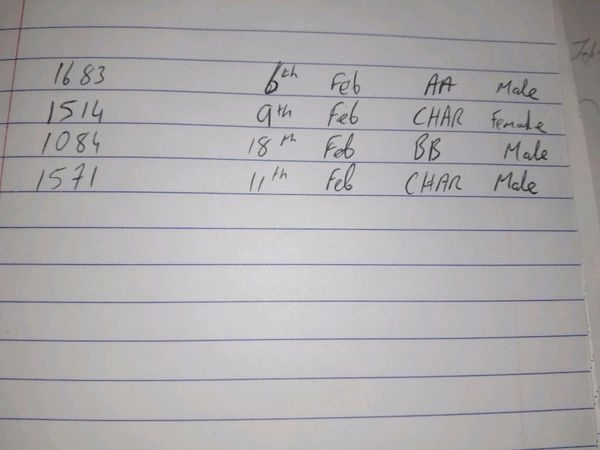 1683 6th Feb AA Male
1514 9th Feb CHAR Female
1084 18th Feb BB Male
1571 11th Feb CHAR Male